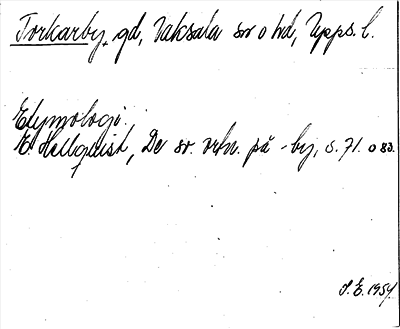 Torkarby, gd, Vaksala sn o hd, Upps. l.
Etymologi:
E Hellquist, De sv. ortn. på -by, s. 71. o 83.
S. E. 1954